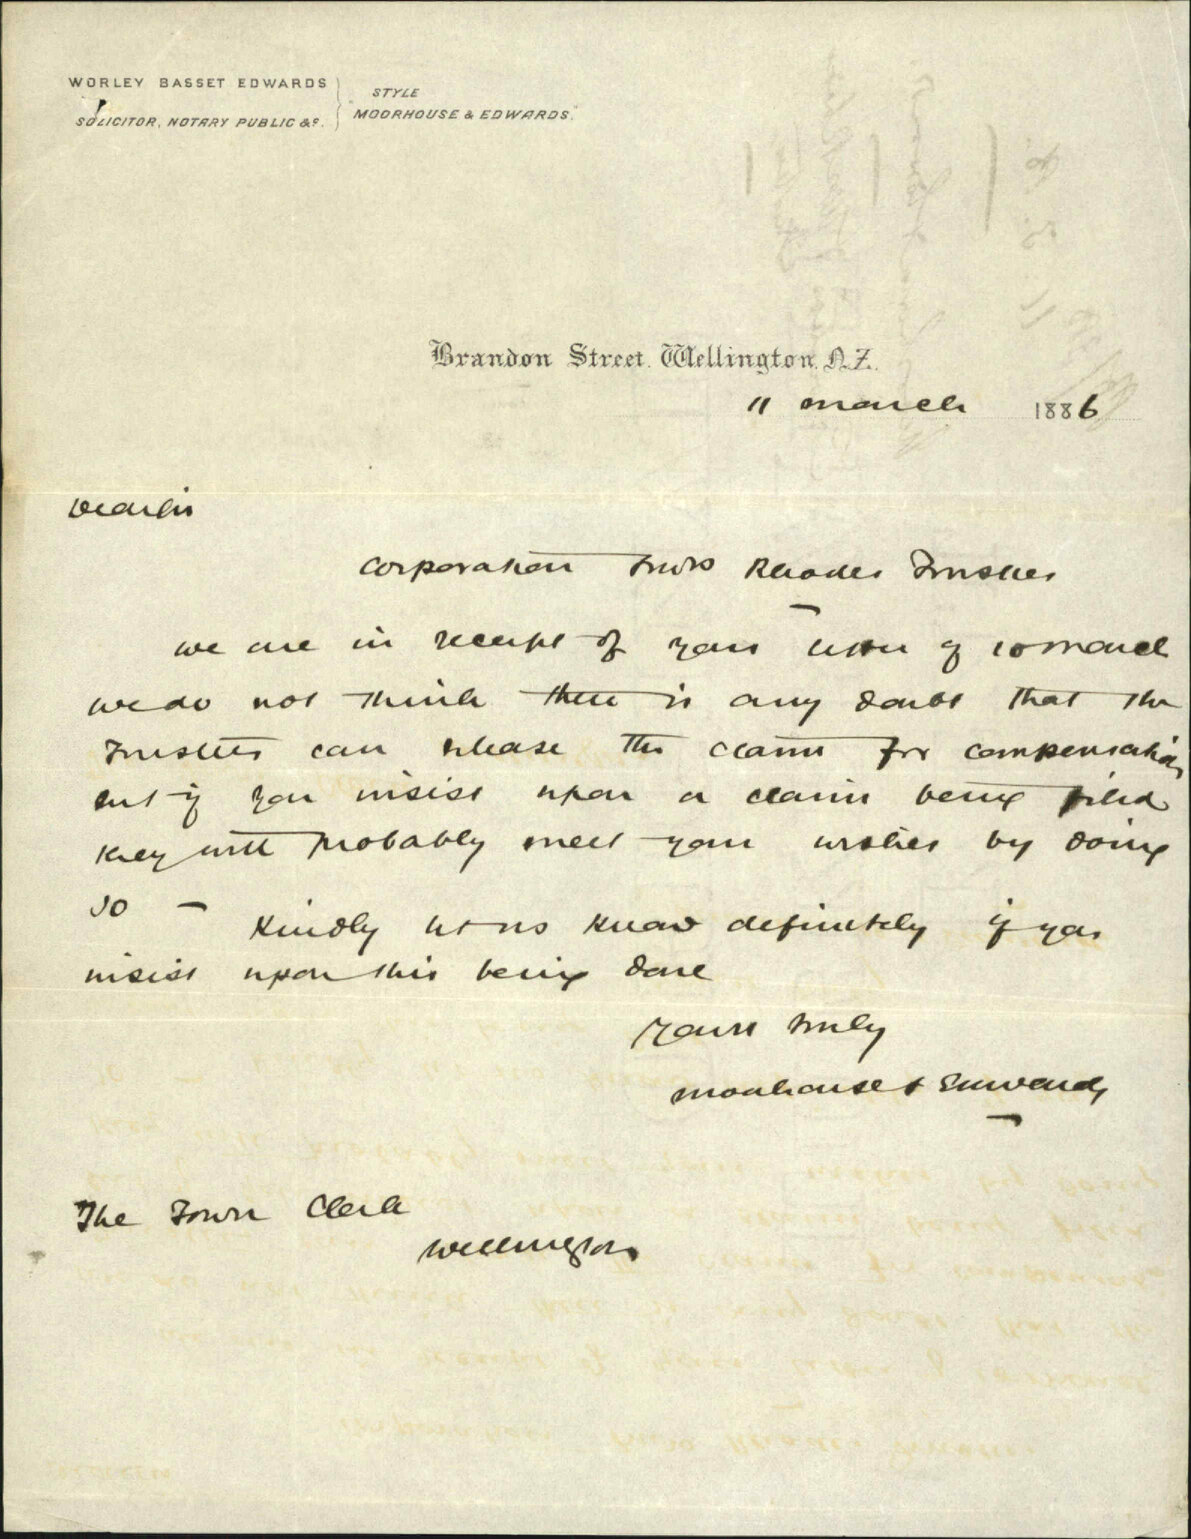 WORLEY BASSET EDWARDS
SOLICITOR, NOTARY PUBLIC &c.
STYLE
"MOORHOUSE & EDWARDS."
Brandon Street. Wellington. N.Z.
11 march 1886
Dear Sir
Corporation Rhodes Trustees
we are in receipt of your letter of 10 march
we do not think there is any doubt that the
Trustees can release the claim for compensation
but if you insist upon a claim being filed
they will probably meet your wishes by doing
so - Kindly let us know definitely if you
insist upon this being done
Yours truly
Moorhouse & Edwards
The Town Clerk
Wellington